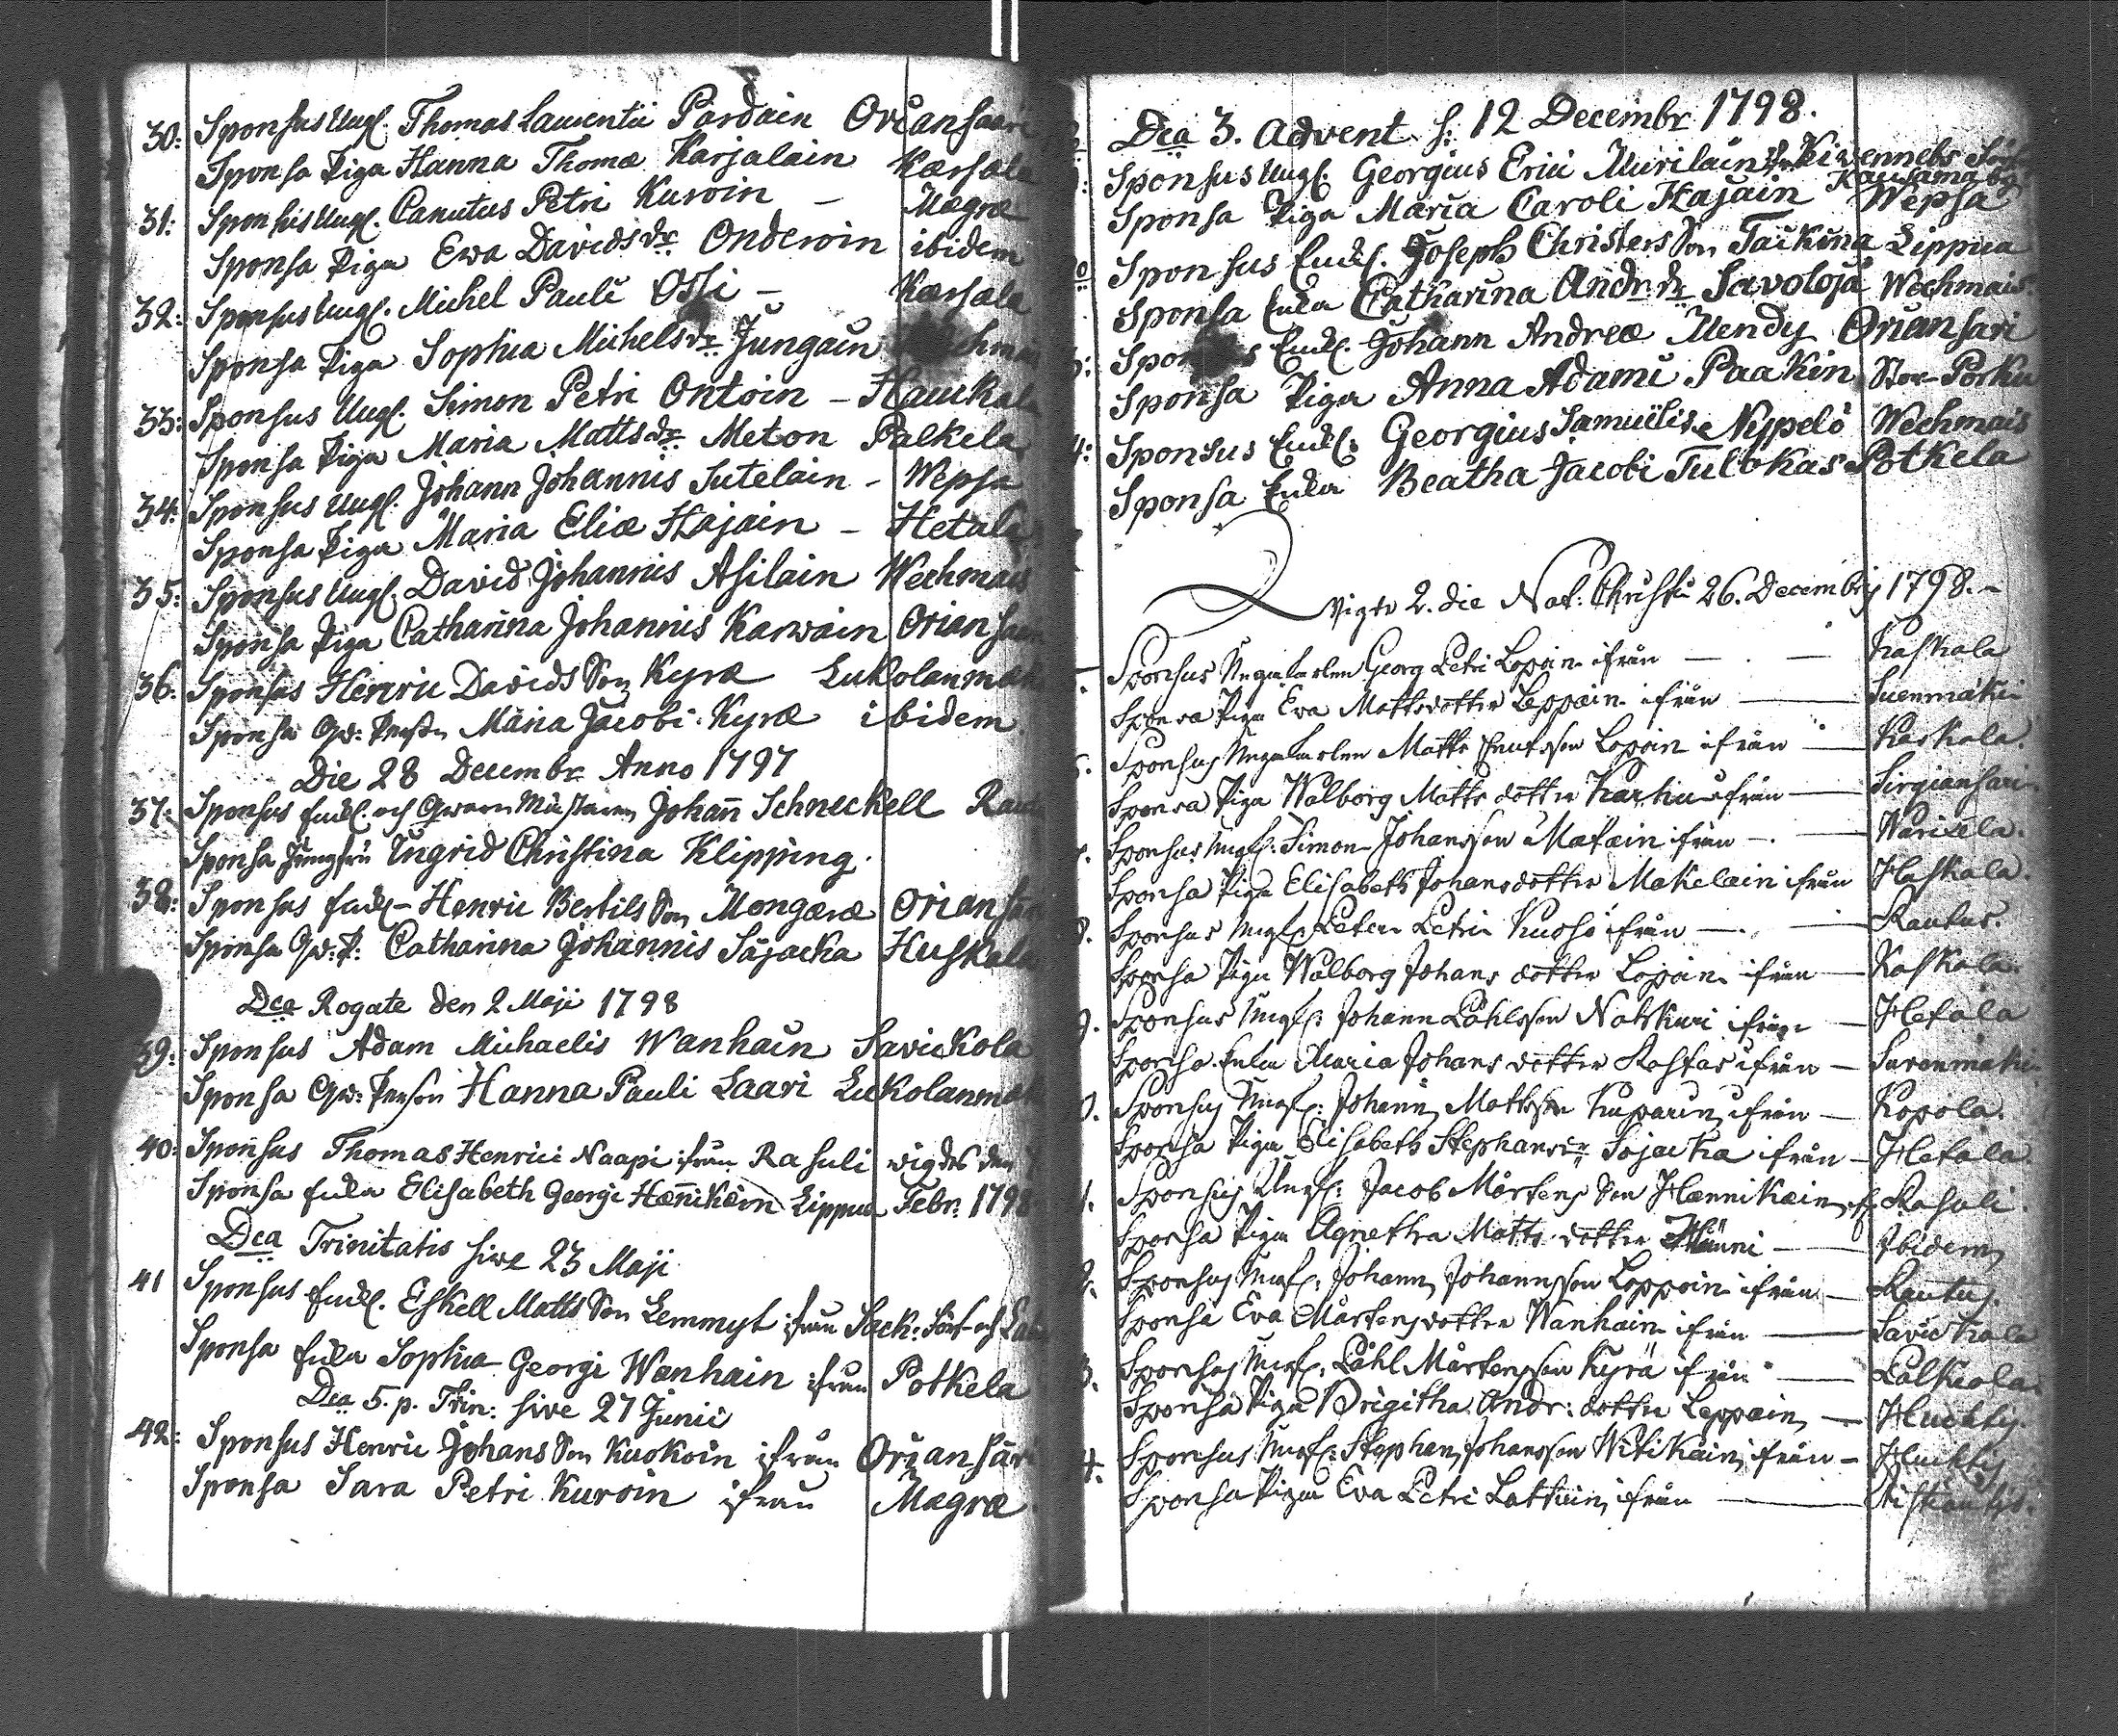 30: Sponsus Ungk. Thomas Laurentii Pårdain Oriansaari
Sponsa Piga Hanna Thomæ Karjalain Kærsæla
31: Sponsus Ungk. Canutus Petri Kuroin – Mægræ
Sponsa Piga Ewa Davidsdr Onderoin ibidem
32: Sponsus Ungk. Michel Pauli Ossi – Kærsæla
Sponsa Piga Sophia Michelsdr Jungain
33: Sponsus Ungk. Simon Petri Ontoin – Haukala
Sponsa Piga Maria Mattsdr Meton Palkela
34: Sponsus Ungk. Johann Johannis Sutelain – Wepsa
Sponsa Piga Maria Eliæ Hajain – Hetala
35: Sponsus Ungk. David Johannis Asilain Wechmais
Sponsa Piga Catharina Johannis Karwain Oriansaari
36: Sponsus Henric Davids Son Kyræ Lukolanmäk
Sponsa Qw: Person Maria Jacobi Kyræ ibidem
Die 28 Decembr Anno 1797
37: Sponsus Enkl. och Qwarn Mästaren Johan̄ Schneckell
Sponsa Jungfru Ingrid Christina Klipping.
38: Sponsus Enkl– Henric Bertils Son Mongæræ Oriansaari
Sponsa Qw: P: Catharina Johannis Säjacka Huskala
Dca Rogate den 2 Maji 1798
39: Sponsus Adam Michaelis Wanhain Savickola
Sponsa Qw: Person Hanna Pauli Laari Luckolanmäk
40: Sponsus Thomas Henrici Naapi ifrån Rasuli wigdes den
Sponsa Enka Elisabeth Georgi Hæn̄ikæin Lippua Febr: 1798
Dca Trinitatis sive 23 Maji
41 Sponsus Enkl. Eskell Matts Son Lemmyt ifrån Sack: Sok– och
Sponsa Enka Sophia Georgi Wanhain ifrån Potkela
Dca 5. p. Trin: sive 27 Junii
42: Sponsus Henric Johans Son Kuokoin ifrån Oriansar
Sponsa Sara Petri Kuroin ifrån Mægræ
Dca 3. Advent s: 12 Decembr 1798.
Sponsus Ungk. Georgius Erici Uurilain Kivennebs Sokn
Kausama by
Sponsa Piga Maria Caroli Hajain Wepsa
Sponsus Enkl. Joseph Christers Son Taickina Lippua
Sponsa Enka Catharina Andr. dr Savoloja Wechmais
Sponsus Enkl. Johann Andreæ Mendy Oriansari
Sponsa Piga Anna Adami Paakin Stor-Porku
4: Sponsus Enkl: Georgius Samuelis Nyppelö Wechmais
Sponsa Enka Beatha Jacobi Tulokas Potkela
Vigde 2. die Nat: Christi 26. Decembris 1798.–
Sponsus Georg Petri Lopoin ifrån — Kaskala
Sponsa Piga Eva Mattsdotter Leppain ifrån — Suenmäki
Sponsus Matts Lopoin ifrån — Kaskala.
Sponsa Piga Walborg Matts dotter Karhu ifrån — Sirgiansari
Sponsus Ungk: Simon Johansson Matain ifrån — Waricela.
Sponsa Piga Elisabeth Johansdotter Makelain ifrån Haskala.
8. Sponsus Ungk: Peter Petri Kuosa ifrån — Rautus.
Sponsa Piga Walborg Johans dotter Lopoin ifrån — Kaskala.
9. Sponsus Ungk: Johann Påhlsson Natskuri ifrån — Hetala
Sponsa Enka Maria Johans dotter Rastas ifrån — Suvenmäki
0. Sponsus Ungk: Johann Mattsson Kuparin ifrån — Kopola.
Sponsa Piga Elisabeth Stephansdr Sojacka ifrån – Hetala.
1. Sponsus Ungk: Jacob Mårtens Son Hænnikæin if. Rasuli.
Sponsa Piga Agnetha Matts dotter Hänni — Ibidem
2. Sponsus Ungk: Johann Johannsson Loppoin ifrån — Rautus.
Sponsa Eva Mårtensdotter Wanhain ifrån — Savickala
3. Sponsus Ungk: Påhl Mårtensson Kyrä ifrån — Palkeala.
Sponsa Piga Brigitha Andr: dotter Leppain — Hucktis.
4. Sponsus Ungk: Stephan Johansson Witikain ifrån – Hucktis
Sponsa Piga Eva Petri Lattuin ifrån —